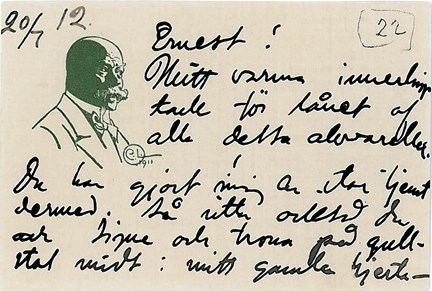 20/7 12.
22
Ernest!
Mitt varma innerliga
tack för lånet af
alla detta akvareller.
C.L.
1911
Du har gjort mig en stor tjenst
dermed. Så sitter
och Signe och trona på gull-
stol midt i mitt gamla hjerta-